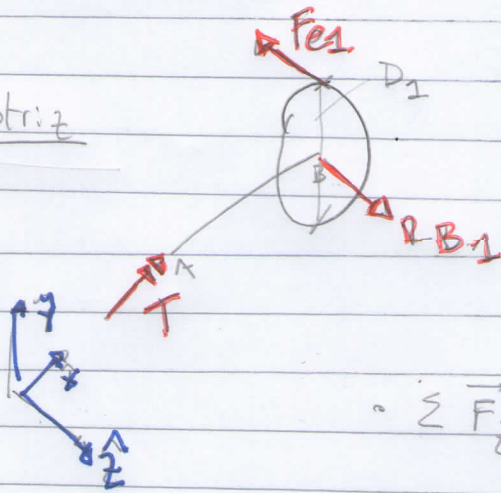 Fe1
D1
otriz
B
RB1
A
T
y
x
ẑ
• Σ F